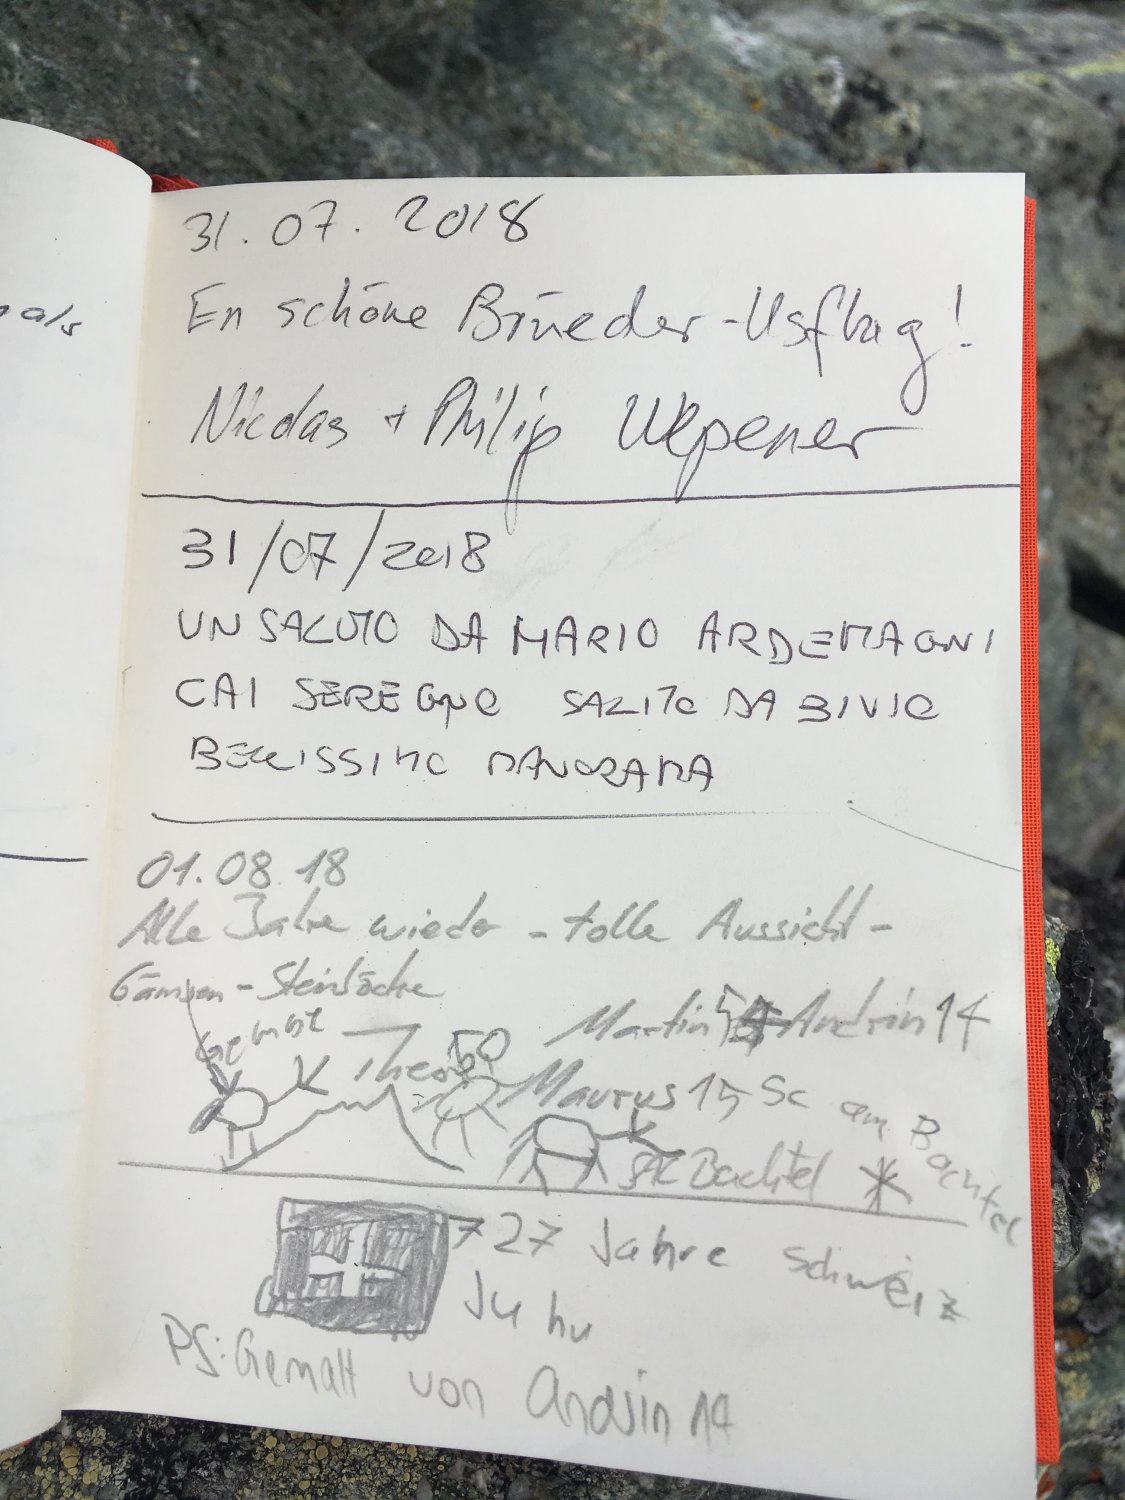 31.07.2018
En schöne Brüeder-Usflug!
Nicolas + Philip
31/07/2018
UN SALUTO DA MARIO ARDEMAGNI
CAI SEREGNO SALITO DA BIVIO
BELLISSIMO PANORAMA
01.08.18
Alle Jahre wieder - tolle Aussicht -
Gämsen - Steinböcke
Martin Andrin 14
Theo 50
Maurus 15 SC am Bachtel
Bachtel
727 Jahre Schweiz
Juhu
PS: Gemalt von Andrin 14